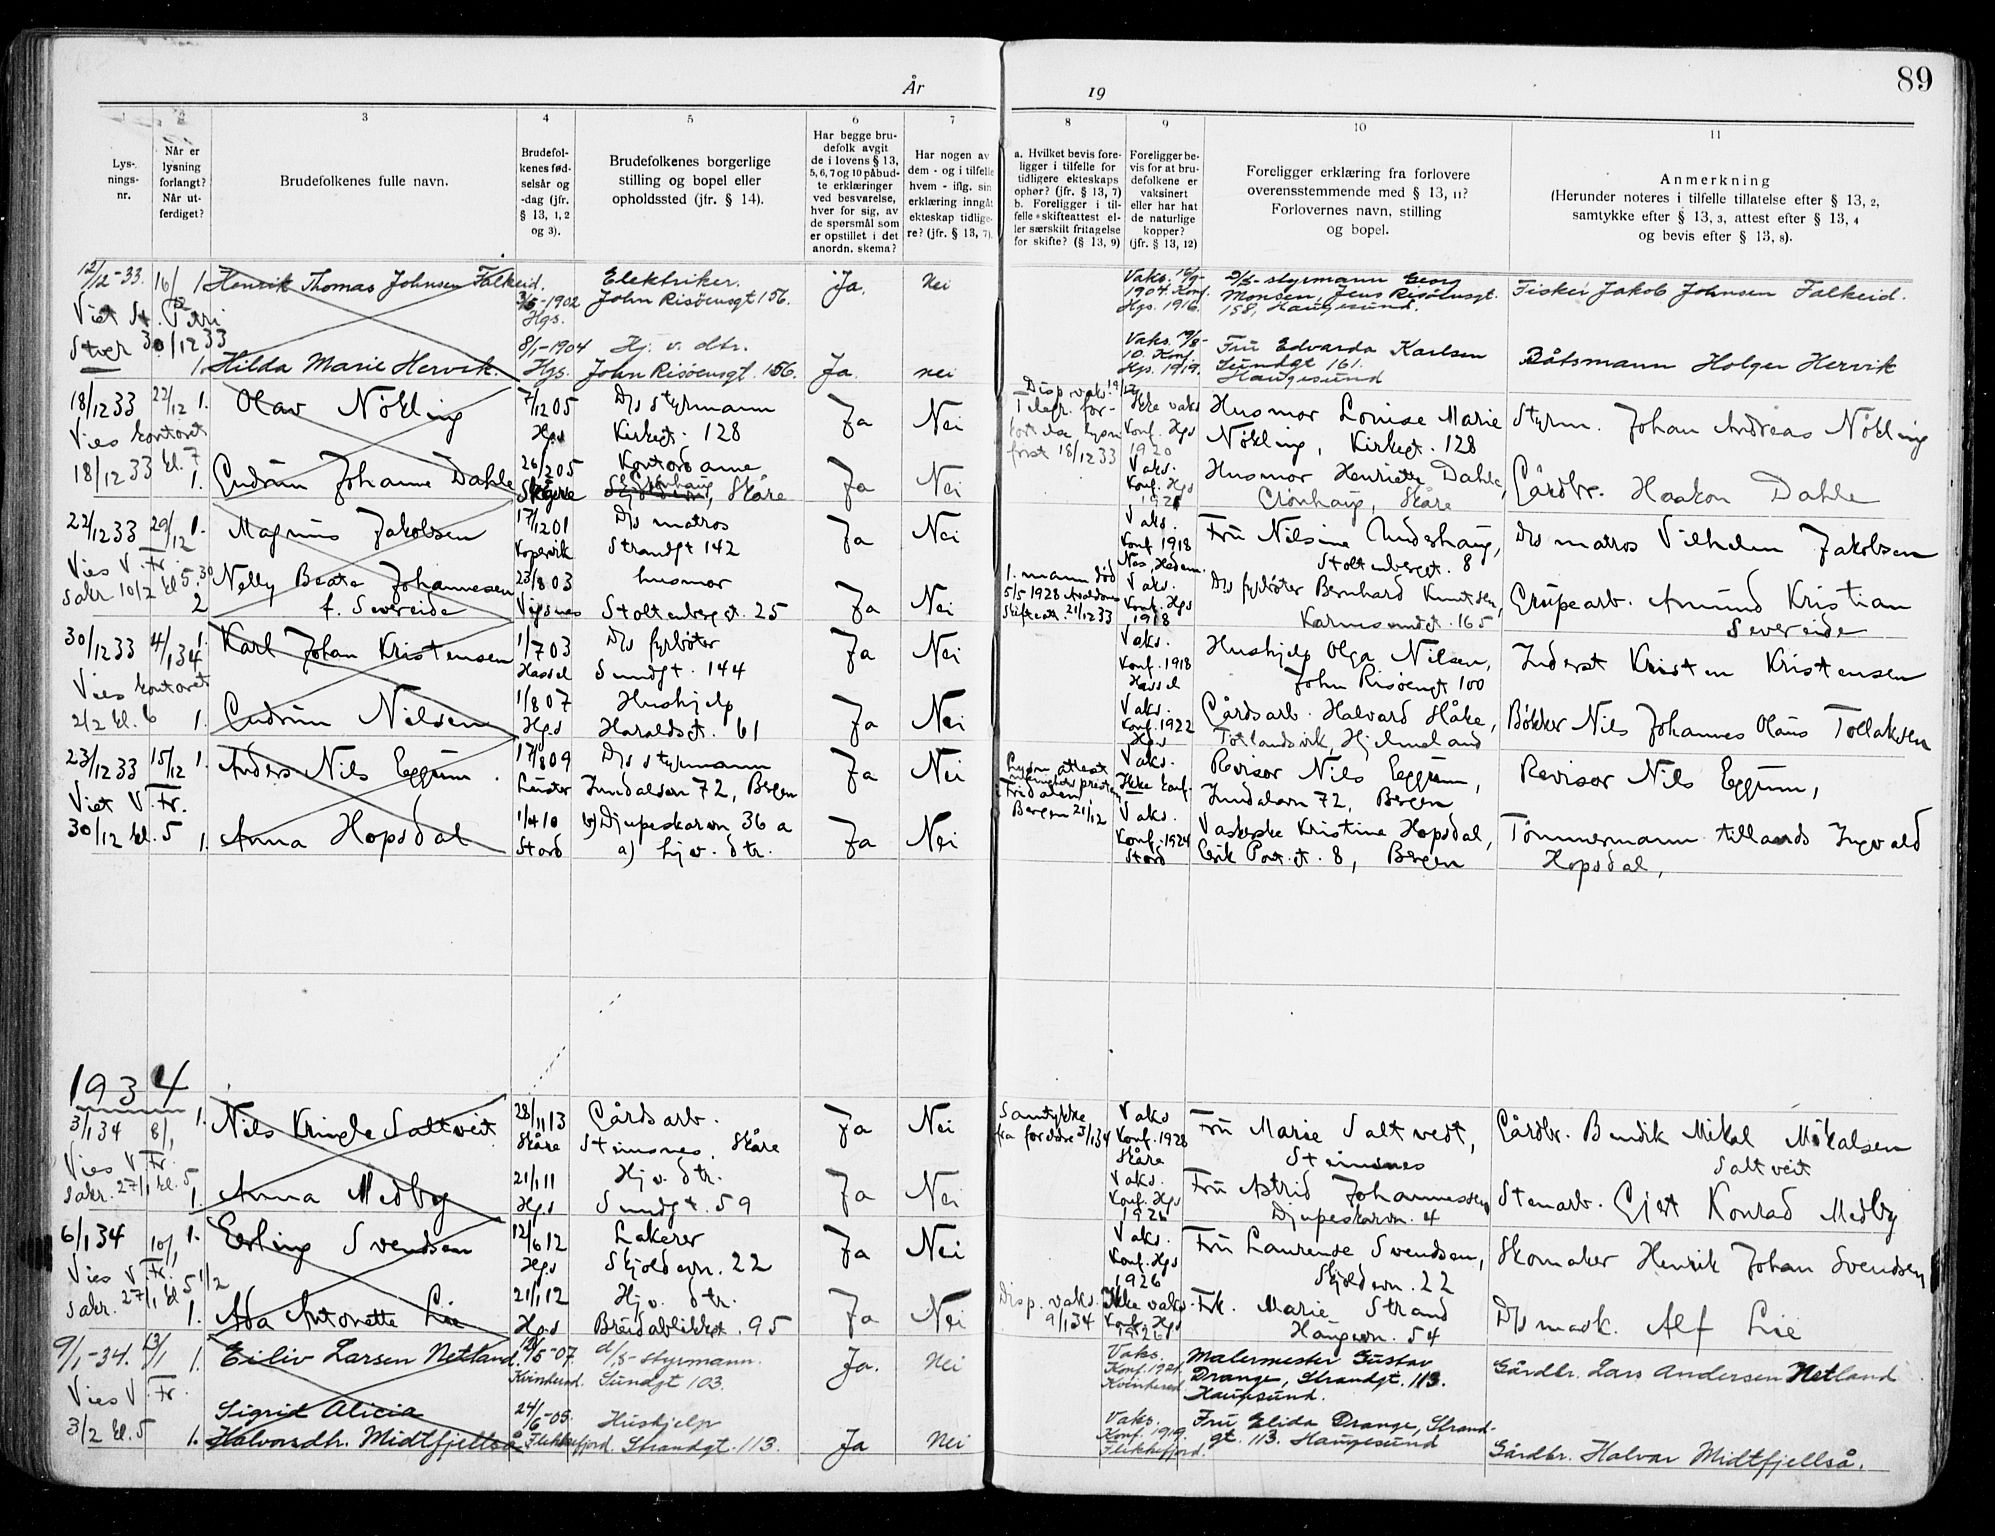 89
År
19
1 2 3 4 5 6 7 8 9 10 11
Lys-
nings-
nr.
Når er
lysning
forlangt?
Når ut-
ferdiget?
Brudefolkenes fulle navn.
Brudefol-
kenes fød-
selsår og
-dag (jfr.
§ 13, 1, 2
og 3).
Brudefolkenes borgerlige
stilling og bopel eller
opholdssted (jfr. § 14).
Har begge bru-
defolk avgit
de i lovens § 13,
5, 6, 7 og 10 påbud-
te erklæringer
ved besvarelse,
hver for sig, av
de spørsmål som
er opstillet i det
anordn. skema?
Har nogen av
dem - og i tilfelle
hvem - iflg. sin
erklæring inngått
ekteskap tidlige-
re? (jfr. § 13, 7).
a. Hvilket bevis fore-
ligger i tilfelle for
tidligere ekteskaps
ophør? (jfr. § 13, 7)
b. Foreligger i til-
felle skifteattest el-
ler særskilt fritagelse
for skifte? (§ 13, 9)
Foreligger be-
vis for at bru-
defolkene er
vaksinert
eller har hat
de naturlige
kopper?
(jfr. § 13, 12)
Foreligger erklæring fra forlovere
overensstemmende med § 13, 11?
Forlovernes navn, stilling
og bopel.
Anmerkning
(Herunder noteres i tilfelle tillatelse efter § 13, 2,
samtykke efter § 13, 3, attest efter § 13, 4
og bevis efter § 13, 8).
12/12-33. 16/12 1. Henrik Thomas Johnsen Falkeid. 3/5-1902 Hgs. Elektriker. John Risøensgt 156. Ja. Nei Vaks. 16/9-1904. Konf. Hgs. 1916. D/s-styrmann Georg Monsen, Jens Risøensgt. 158, Haugesund. Fisker Jakob Johnsen Falkeid.
Viet St. Petri
30/12 33
1. Hilda Marie Hervik. 8/1-1904 Hgs. Hj. v. dtr. John Risøensgt. 156. Ja. nei Vaks. 19/8-10. Konf. Hgs. 1919. Fru Edvarda Karlsen Sundgt 161. Haugesund Båtsmann Holger Hervik
18/12 33 22/12 1. Olav Nökling 7/12 05 Hgs D/s styrmann Kirkegt. 128 Ja Nei Disp. vaks. 19/12 Ikke vaks Konf. Hgs 1920 Husmor Louise Marie Nökling, Kirkegt. 128 Styrm. Johan Andreas Nökling
Telegr. for-
kortelse lysn
frist 18/12 33
Vies kontoret
18/12 33 kl. 7
1. Gudrun Johanne Dahle 26/2 05 Kontordame Grönhaug, Skåre Ja Nei Vaks. Konf. Hgs 1921 Husmor Henriette Dahle, Grönhaug, Skåre Gårdbr. Haakon Dahle
22/12 33 29/12 1. Magnus Jakobsen 17/12 01 Kopervik D/s matros Strandgt 142 Ja Nei Vaks. Konf. 1918 Fru Nilsine Underhaug, Stoltenberggt. 8 D/s matros Vilhelm Jakobsen
Vies V. Fr.
sakr. 10/2 kl 5.30
2 Nelly Beate Johannesen f. Severeide 23/8 03 Vigsnes husmor Stoltenberggt. 25 Ja Nei 1. mann död 5/5 1928 Skifteatt. 21/12 33 Vaks. Konf. Hgs 1918 D/s fyrböter Bernhard Knutsen, Karmsundgt. 165 Grubearb. Amund Kristian Severeide
30/12 33 4/1 34 1. Karl Johan Kristensen 1/7 03 Hassel D/s fyrböter Sundgt. 144 Ja Nei Vaks. Konf. 1918 Hassel Hushjelp Olga Nilsen, John Risöengt 100 Inderst Kristen Kristensen
Vies kontoret
2/2 kl. 6
1. Gudrun Nilsen 1/8 07 Hgs Hushjelp Haraldsgt. 61 Ja Nei Vaks. Konf. 1922 Hgs Gårdsarb. Halvard Håke, Totlandsvik, Hjelmeland Bökker Nils Johannes Olaus Tollaksen
23/12 33 15/12 1. Anders Nils Eggum 17/8 09 Luster D/s styrmann Inndalsvn 72, Bergen Ja Nei Lysn. attest Fridalen, Bergen 21/12 Vaks. Ikke konf. Revisor Nils Eggum, Inndalsvn 72, Bergen Revisor Nils Eggum,
Viet V. Fr.
30/12 kl. 5
1. Anna Hopsdal 1/4 10 Stord b) Djupeskarvn. 36 a a) hj. v. dtr. Ja Nei Vaks. Konf. 1924 Stord Vaskeske Kristine Hopsdal, Erik Pont.gt. 8, Bergen Tömmermann Ingvald Hopsdal,
1934
3/1 34 8/1 1. Nils Kringle Saltveit 28/11 13 Skåre Gårdsarb. Steinsnes, Skåre Ja Nei Samtykke fra foreldre 3/1 34 Vaks Konf. 1928 Skåre Fru Marie Saltvedt, Steinsnes Gårdbr. Bendik Mikal Mikalsen Saltveit
Vies V. Fr.
sakr. 27/1 kl. 5
1. Anna Medby 21/1 11 Hgs Hj. v. dtr. Sundgt. 59 Ja Nei Vaks. Konf. Hgs 1926 Fru Astrid Johannessen, Djupeskarvn. 4 Stenarb. Gjert Konrad Medby
6/1 34 10/1 1. Erling Svendsen 12/6 12 Hgs Lakerer Skjoldevn. 22 Ja Nei Vaks. Konf. Hgs 1926 Fru Laurense Svendsen, Skjoldevn. 22 Skomaker Henrik Johan Svendsen
Vies V. Fr.
sakr. 27/1 kl 5 1/2
1. Ada Antonette Lie 21/1 12 Hgs Hj v. dtr. Breidablikkgt. 95 Ja Nei Disp. vaks. 9/1 34 Ikke vaks. Konf. Hgs Frk. Marie Strand Haugevn. 54 D/s mask. Alf Lie
9/1-34. 13/1 1. Eiliv Larsen Netland. /5-07. Kvinherad. d/s-styrmann. Sundgt 103. Ja. nei Vaks. Konf. 1921. Kvinherad. Malermester Gustav Drange, Strandgt. 113. Haugesund. Gårdbr. Lars Andersen Netland
Vies V. Fr.
3/2 kl. 5
1. Sigrid Alicia Halvorsdtr. Midtfjellså 24/6-05. Flekkefjord. Hushjelp Strandgt. 113. Ja nei Vaks. Konf. 1919. Flekkefjord. Fru Elida Drange, Strand-
gt. 113. Haugesund Gårdbr. Halvar Midtfjellså.